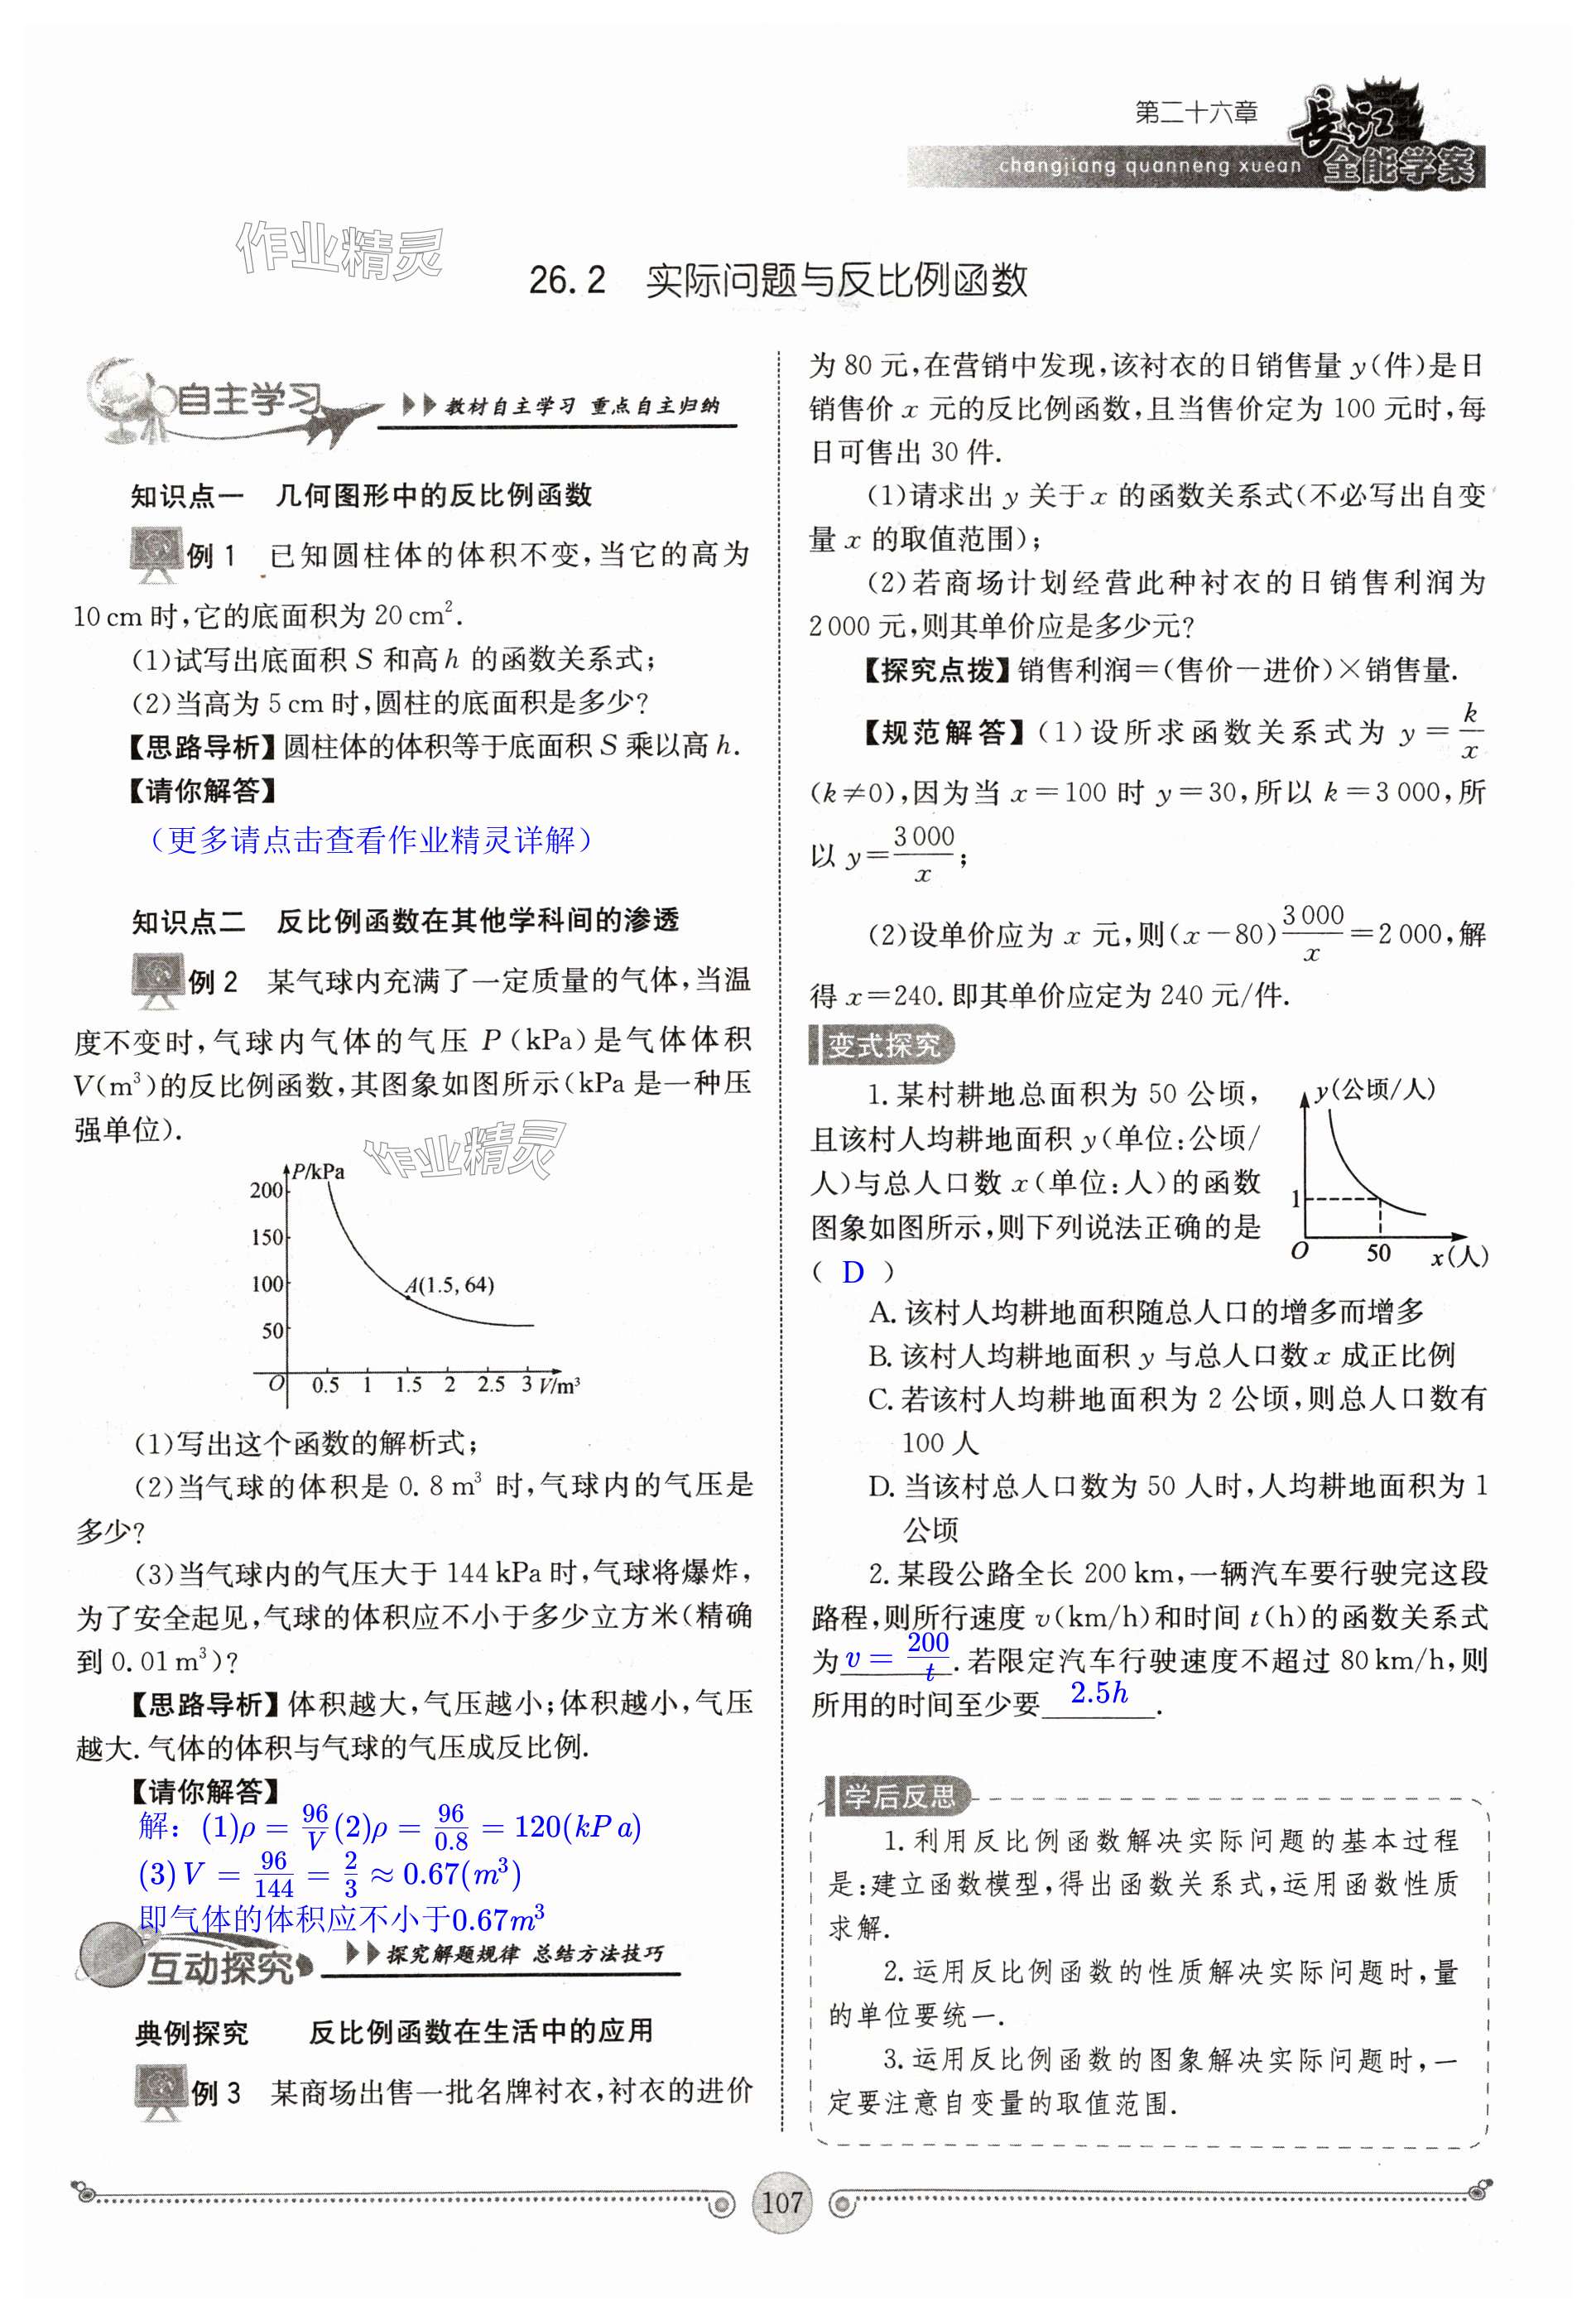 第二十六章
長江
changjiang quanneng xuean
全能学案
作业精灵
26.2 实际问题与反比例函数
自主学习 教材自主学习 重点自主归纳
知识点一 几何图形中的反比例函数
例 1 已知圆柱体的体积不变,当它的高为
10 cm 时,它的底面积为 20 cm².
(1)试写出底面积 S 和高 h 的函数关系式;
(2)当高为 5 cm 时,圆柱的底面积是多少?
【思路导析】圆柱体的体积等于底面积 S 乘以高 h.
【请你解答】
（更多请点击查看作业精灵详解）
知识点二 反比例函数在其他学科间的渗透
例 2 某气球内充满了一定质量的气体,当温
度不变时,气球内气体的气压 P(kPa)是气体体积
V(m³)的反比例函数,其图象如图所示(kPa 是一种压
强单位).
作业精灵
P/kPa
200
150
100
50
A(1.5,64)
O 0.5 1 1.5 2 2.5 3 V/m³
(1)写出这个函数的解析式;
(2)当气球的体积是 0.8 m³ 时,气球内的气压是
多少?
(3)当气球内的气压大于 144 kPa 时,气球将爆炸,
为了安全起见,气球的体积应不小于多少立方米(精确
到 0.01 m³)?
【思路导析】体积越大,气压越小;体积越小,气压
越大.气体的体积与气球的气压成反比例.
【请你解答】
解：(1)ρ = 96/V (2)ρ = 96/0.8 = 120(kPa)
(3)V = 96/144 = 2/3 ≈ 0.67(m³)
即气体的体积应不小于0.67m³
互动探究 探究解题规律 总结方法技巧
典例探究 反比例函数在生活中的应用
例 3 某商场出售一批名牌衬衣,衬衣的进价
为 80 元,在营销中发现,该衬衣的日销售量 y(件)是日
销售价 x 元的反比例函数,且当售价定为 100 元时,每
日可售出 30 件.
(1)请求出 y 关于 x 的函数关系式(不必写出自变
量 x 的取值范围);
(2)若商场计划经营此种衬衣的日销售利润为
2 000 元,则其单价应是多少元?
【探究点拨】销售利润=(售价－进价)×销售量.
【规范解答】(1)设所求函数关系式为 y = k/x
(k≠0),因为当 x=100 时 y=30,所以 k=3 000,所
以 y=3 000/x;
(2)设单价应为 x 元,则(x－80)3 000/x=2 000,解
得 x=240.即其单价应定为 240 元/件.
变式探究
1.某村耕地总面积为 50 公顷,
且该村人均耕地面积 y(单位:公顷/
人)与总人口数 x(单位:人)的函数
图象如图所示,则下列说法正确的是
( D )
y(公顷/人)
1
O 50 x(人)
A.该村人均耕地面积随总人口的增多而增多
B.该村人均耕地面积 y 与总人口数 x 成正比例
C.若该村人均耕地面积为 2 公顷,则总人口数有
100 人
D.当该村总人口数为 50 人时,人均耕地面积为 1
公顷
2.某段公路全长 200 km,一辆汽车要行驶完这段
路程,则所行速度 v(km/h)和时间 t(h)的函数关系式
为 v = 200/t .若限定汽车行驶速度不超过 80 km/h,则
所用的时间至少要 2.5h .
学后反思
1.利用反比例函数解决实际问题的基本过程
是:建立函数模型,得出函数关系式,运用函数性质
求解.
2.运用反比例函数的性质解决实际问题时,量
的单位要统一.
3.运用反比例函数的图象解决实际问题时,一
定要注意自变量的取值范围.
107